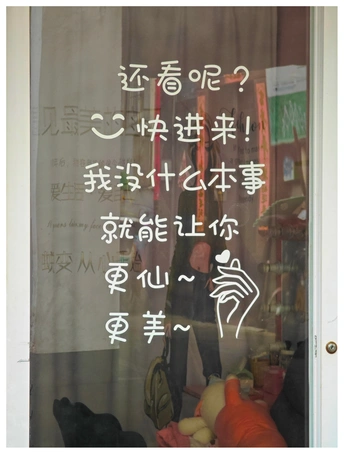 还看呢？
快进来！
我没什么本事
就能让你
更仙~
更美~